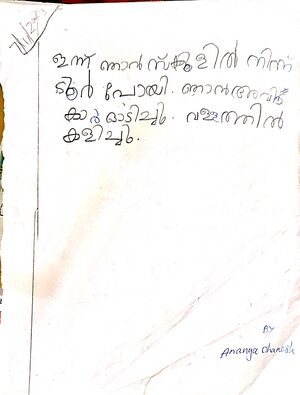 ഇന്ന് ഞാൻ സ്കൂളിൽ നിന്ന്
ടൂർ പോയി. ഞാൻ അവിടെ
കാർ ഓടിച്ചു. വള്ളത്തിൽ
കളിച്ചു.
BY
Ananga Dhanesh